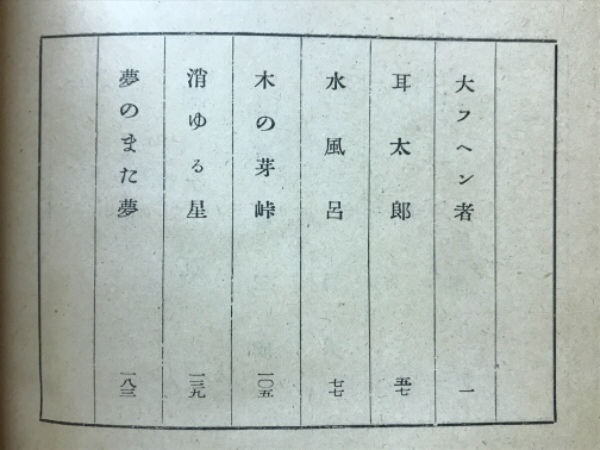 大フヘン者 一
耳太郎 五七
水風呂 七七
木の芽峠 一〇五
消ゆる星 一三九
夢のまた夢 一八三